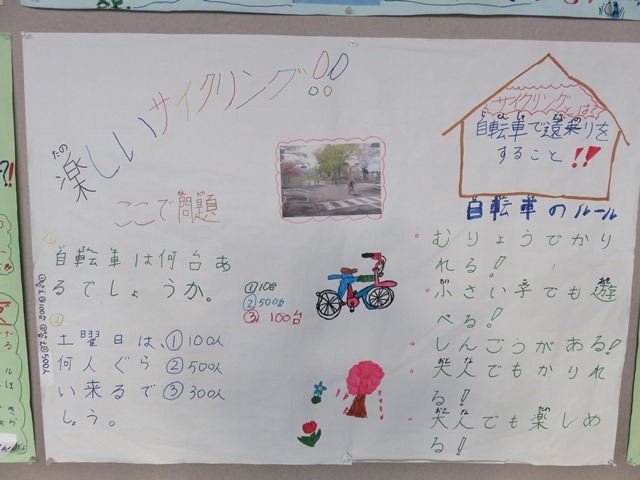 楽しいサイクリング!!
たの
ここで問題
もんだい
①
自転車は何台あ
るでしょうか。
①10台
②500台
③100台
②
土曜日は、①100人
何人ぐら ②500人
い来るで ③300人
しょう。
サイクリングとは?
自転車で遠乗りを
すること!!
自転車のルール
むりょうでかり
れる!
小さい子でも遊
べる!
しんごうがある!
大人でもかりれ
る!
大人でも楽しめ
る!